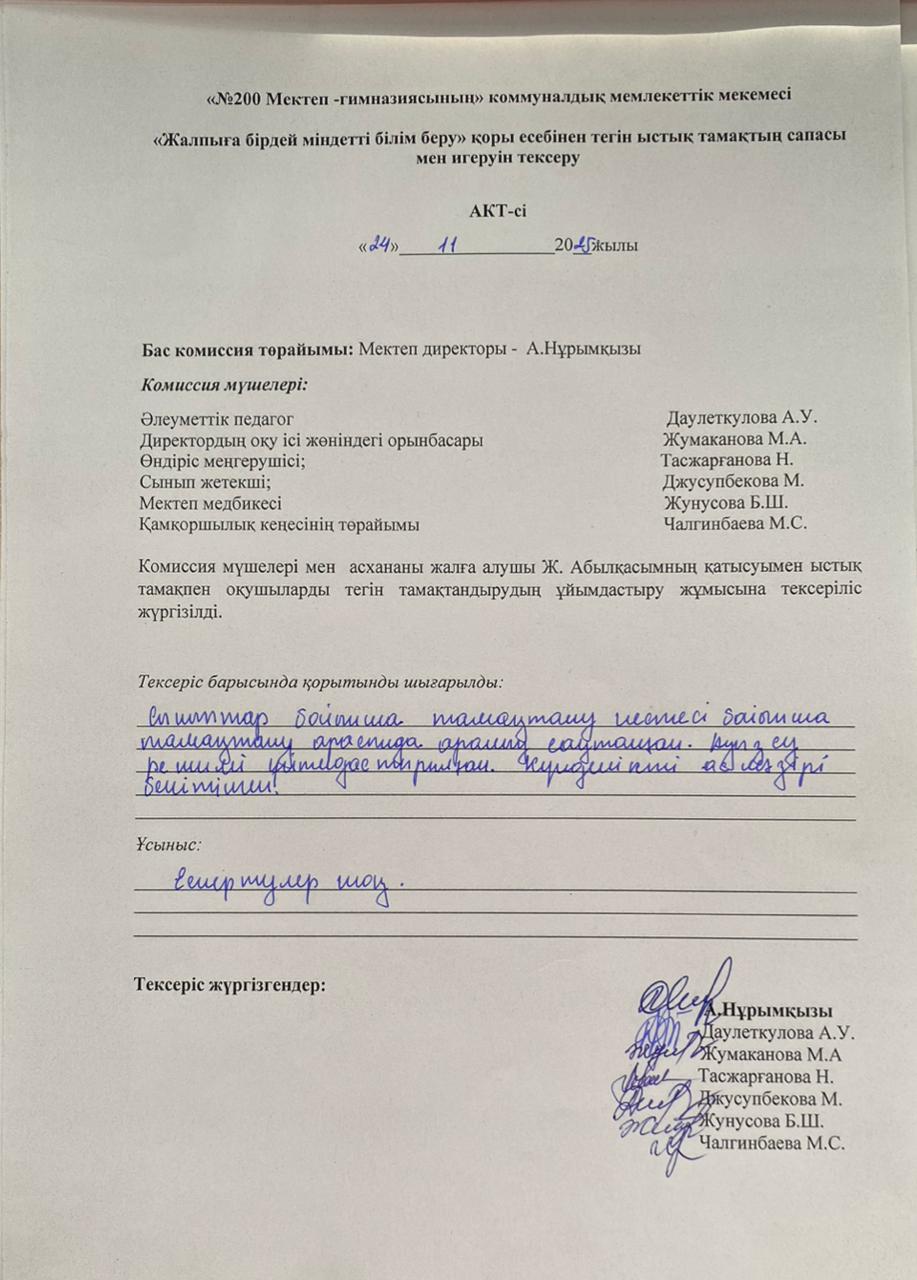 «№200 Мектеп -гимназиясының» коммуналдық мемлекеттік мекемесі
«Жалпыға бірдей міндетті білім беру» қоры есебінен тегін ыстық тамақтың сапасы
мен игеруін тексеру
АКТ-сі
«24» 11 2025жылы
Бас комиссия төрайымы: Мектеп директоры - А.Нұрымқызы
Комиссия мүшелері:
Әлеуметтік педагог Даулеткулова А.У.
Директордың оқу ісі жөніндегі орынбасары Жумаканова М.А.
Өндіріс меңгерушісі; Тасжарғанова Н.
Сынып жетекші; Джусупбекова М.
Мектеп медбикесі Жунусова Б.Ш.
Қамқоршылық кеңесінің төрайымы Чалгинбаева М.С.
Комиссия мүшелері мен асхананы жалға алушы Ж. Абылқасымның қатысуымен ыстық
тамақпен оқушыларды тегін тамақтандырудың ұйымдастыру жұмысына тексеріліс
жүргізілді.
Тексеріс барысында қорытынды шығарылды:
Сыныптар бойынша тамақтану кестесі бойынша
тамақтану арасында аралық сақталған. Ауыз су
режимі ұйымдастырылған. Күнделікті ас мәзірі
бекітілген.
Ұсыныс:
Ескертулер жоқ.
Тексеріс жүргізгендер:
А.Нұрымқызы
Даулеткулова А.У.
Жумаканова М.А
Тасжарғанова Н.
Джусупбекова М.
Жунусова Б.Ш.
Чалгинбаева М.С.